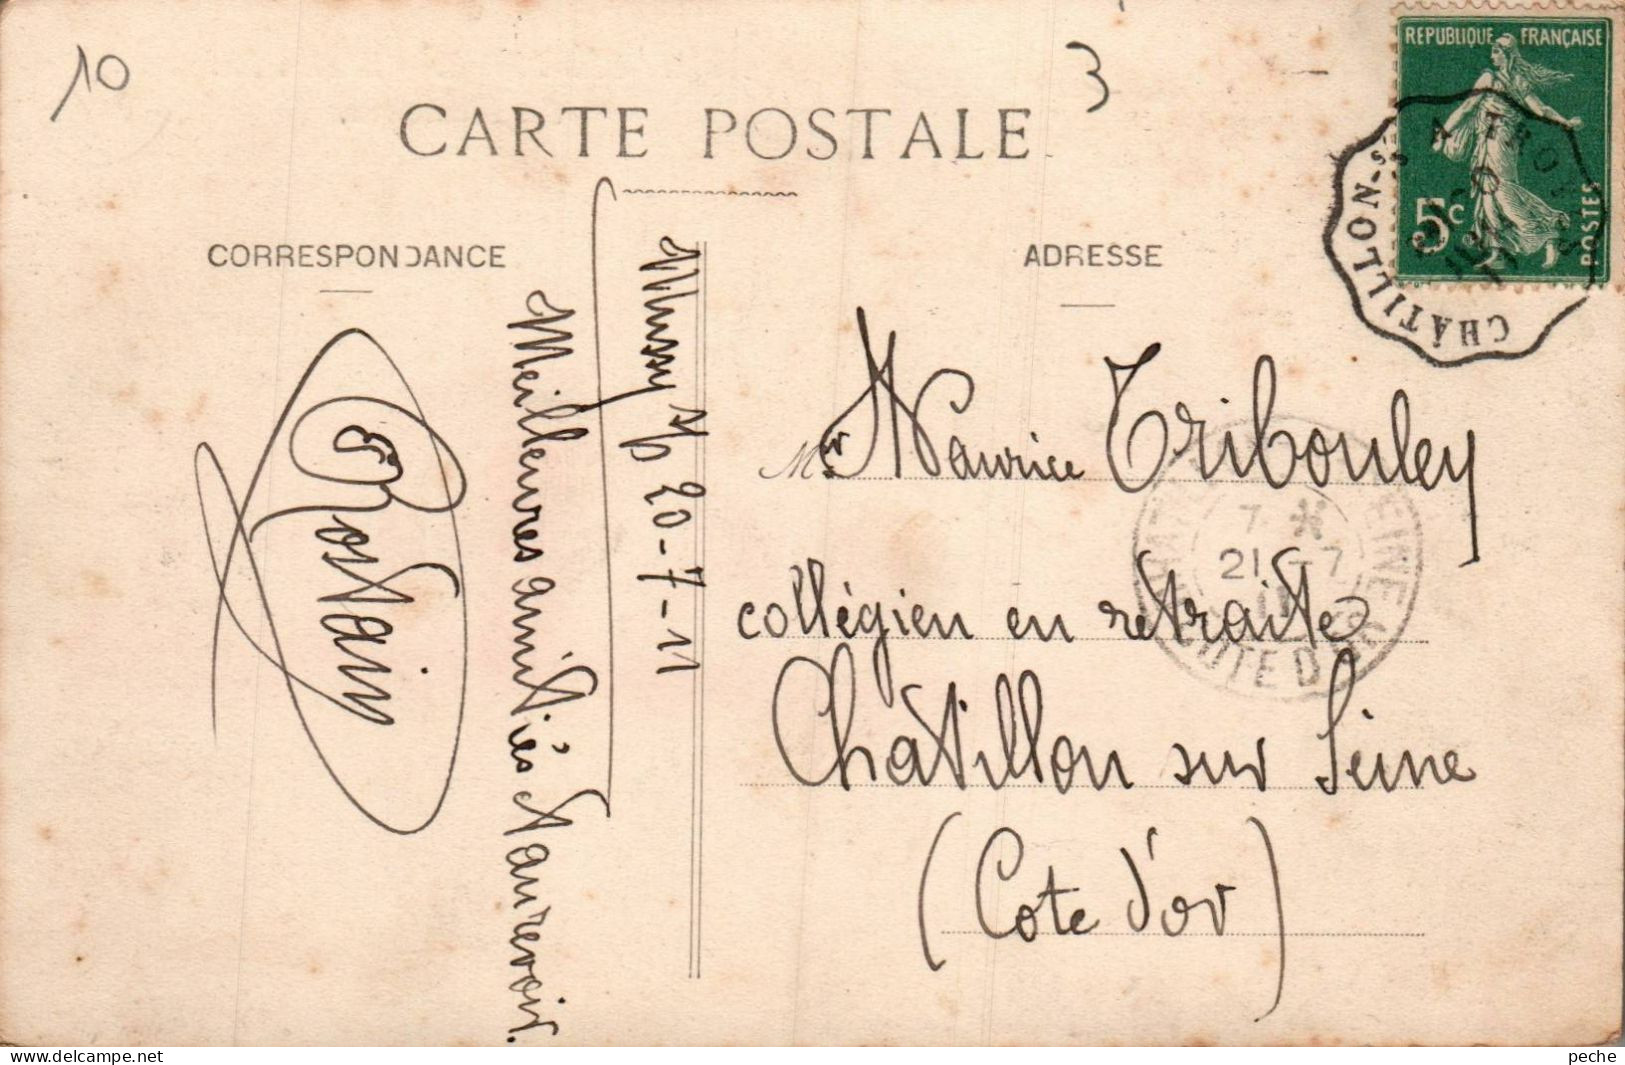 10
3
CARTE POSTALE
CORRESPONDANCE
ADRESSE
REPUBLIQUE FRANÇAISE
5c
POSTES
CHATILLON-S-S A TROYES
Mussy s/s 20-7-11
Meilleures amitiés & au revoir.
Rostain
Mr Maurice Tribouley
collégien en retraite
Châtillon sur Seine
(Cote d'or)
7 *
21 - 7
11
COTE D'OR
delcampe.net
peche